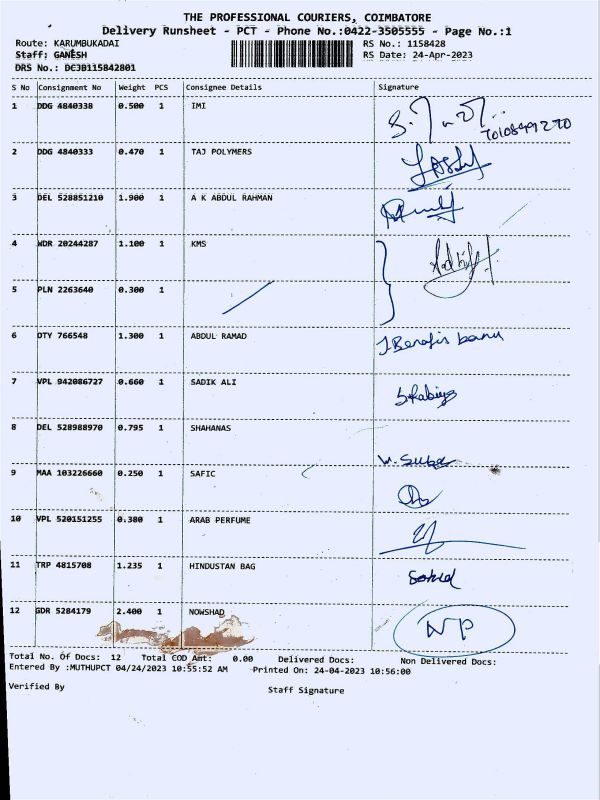 THE PROFESSIONAL COURIERS, COIMBATORE
Delivery Runsheet - PCT - Phone No.:0422-3505555 - Page No.:1
Route: KARUMBUKADAI RS No.: 1158428
Staff: GANESH RS Date: 24-Apr-2023
DRS No.: DCJB115842801
S No Consignment No Weight PCS Consignee Details Signature
1 DDG 4840338 0.500 1 IMI
7010849270
2 DDG 4840333 0.470 1 TAJ POLYMERS
3 DEL 528851210 1.900 1 A K ABDUL RAHMAN
4 WDR 20244287 1.100 1 KMS
5 PLN 2263640 0.300 1
6 OTY 766548 1.300 1 ABDUL RAMAD J Benafis banu
7 VPL 942086727 0.660 1 SADIK ALI
8 DEL 528988970 0.795 1 SHAHANAS
9 MAA 103226660 0.250 1 SAFIC
10 VPL 520151255 0.380 1 ARAB PERFUME
11 TRP 4815708 1.235 1 HINDUSTAN BAG
12 GDR 5284179 2.400 1 NOWSHAD NP
Total No. Of Docs: 12 Total COD Amt: 0.00 Delivered Docs: Non Delivered Docs:
Entered By :MUTHUPCT 04/24/2023 10:55:52 AM Printed On: 24-04-2023 10:56:00
Verified By Staff Signature